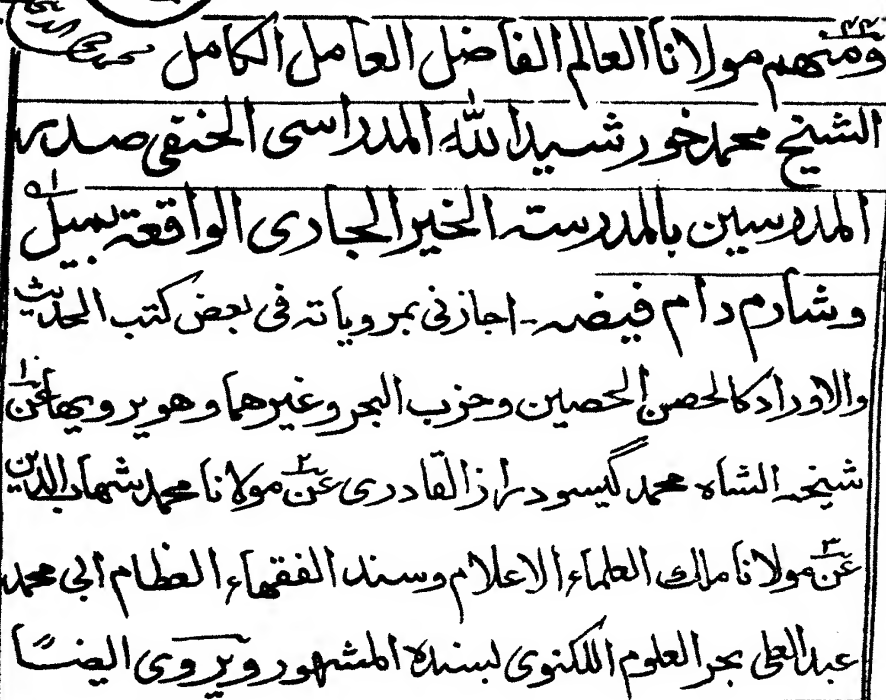 محي الدين
ومنهم مولانا العالم الفاضل العامل الكامل
الشيخ محمد خورشيد الله المدراسى الحنفى صدر
المدرسين بالمدرسته الخير الجارى الواقعة بسيل
وشارم دام فيضه - اجازنى بمروياته فى بعض كتب الحديث
والاوراد كالحصن الحصين وحزب البحر وغيرهما وهو يرويها عن
شيخه الشاه محمد گيسودراز القادرى عن مولانا محمد شهاب الدين
عن مولانا ملك العلماء الاعلام وسند الفقهاء العظام ابى محمد
عبد العلى بحر العلوم اللكنوى بسنده المشهور ويروى ايضًا